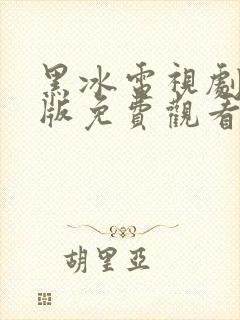 黑冰雷視劇
版免費觀看
胡里亞